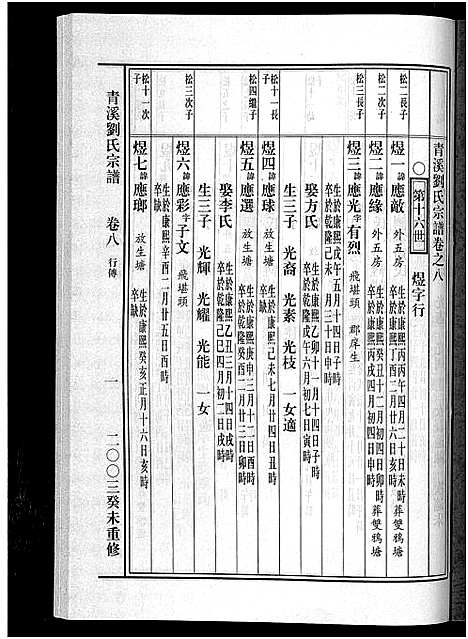 青溪劉氏宗譜卷之八
○ 第十六世 煜字行
松二長子
煜一諱應敵 外五房 生於康熙丙丙午四月二十日未時
卒於康熙丁酉三月廿六日亥時 葬雙鴉塘
松二次子
煜二諱應緣 外五房 生於康熙癸丑十二月初四日申時
卒於康熙丙戌四月初四日申時 葬雙鴉塘
松三長子
煜三諱應光字有烈 飛堪頭 郡庠生
生於康熙戊午五月十四日子時
卒於乾隆己未十月三十日卯時
娶方氏 生於康熙乙卯十一月初十四日子時
卒於乾隆戊午六月初七日寅時
生三子 光裔 光素 光枝 一女適
松十一長子
煜四諱應球 放生塘 生於康熙己未七月廿四日丑時
卒缺
松四繼子
煜五諱應選 放生塘 生於康熙庚申三月十二日酉時
卒於乾隆癸酉二月廿三日卯時
娶李氏 生於康熙乙丑三月十四日戌時
卒於乾隆己巳四月初二日戌時
生三子 光輝 光耀 光能 一女
松三次子
煜六諱應彩字子文 飛堪頭
生於康熙辛酉十二月廿五日酉時
卒缺
松十一次子
煜七諱應瑯 放生塘 生於康熙癸亥正月十六日亥時
卒缺
青溪劉氏宗譜 卷八 行傳 一 二〇〇三癸未重修